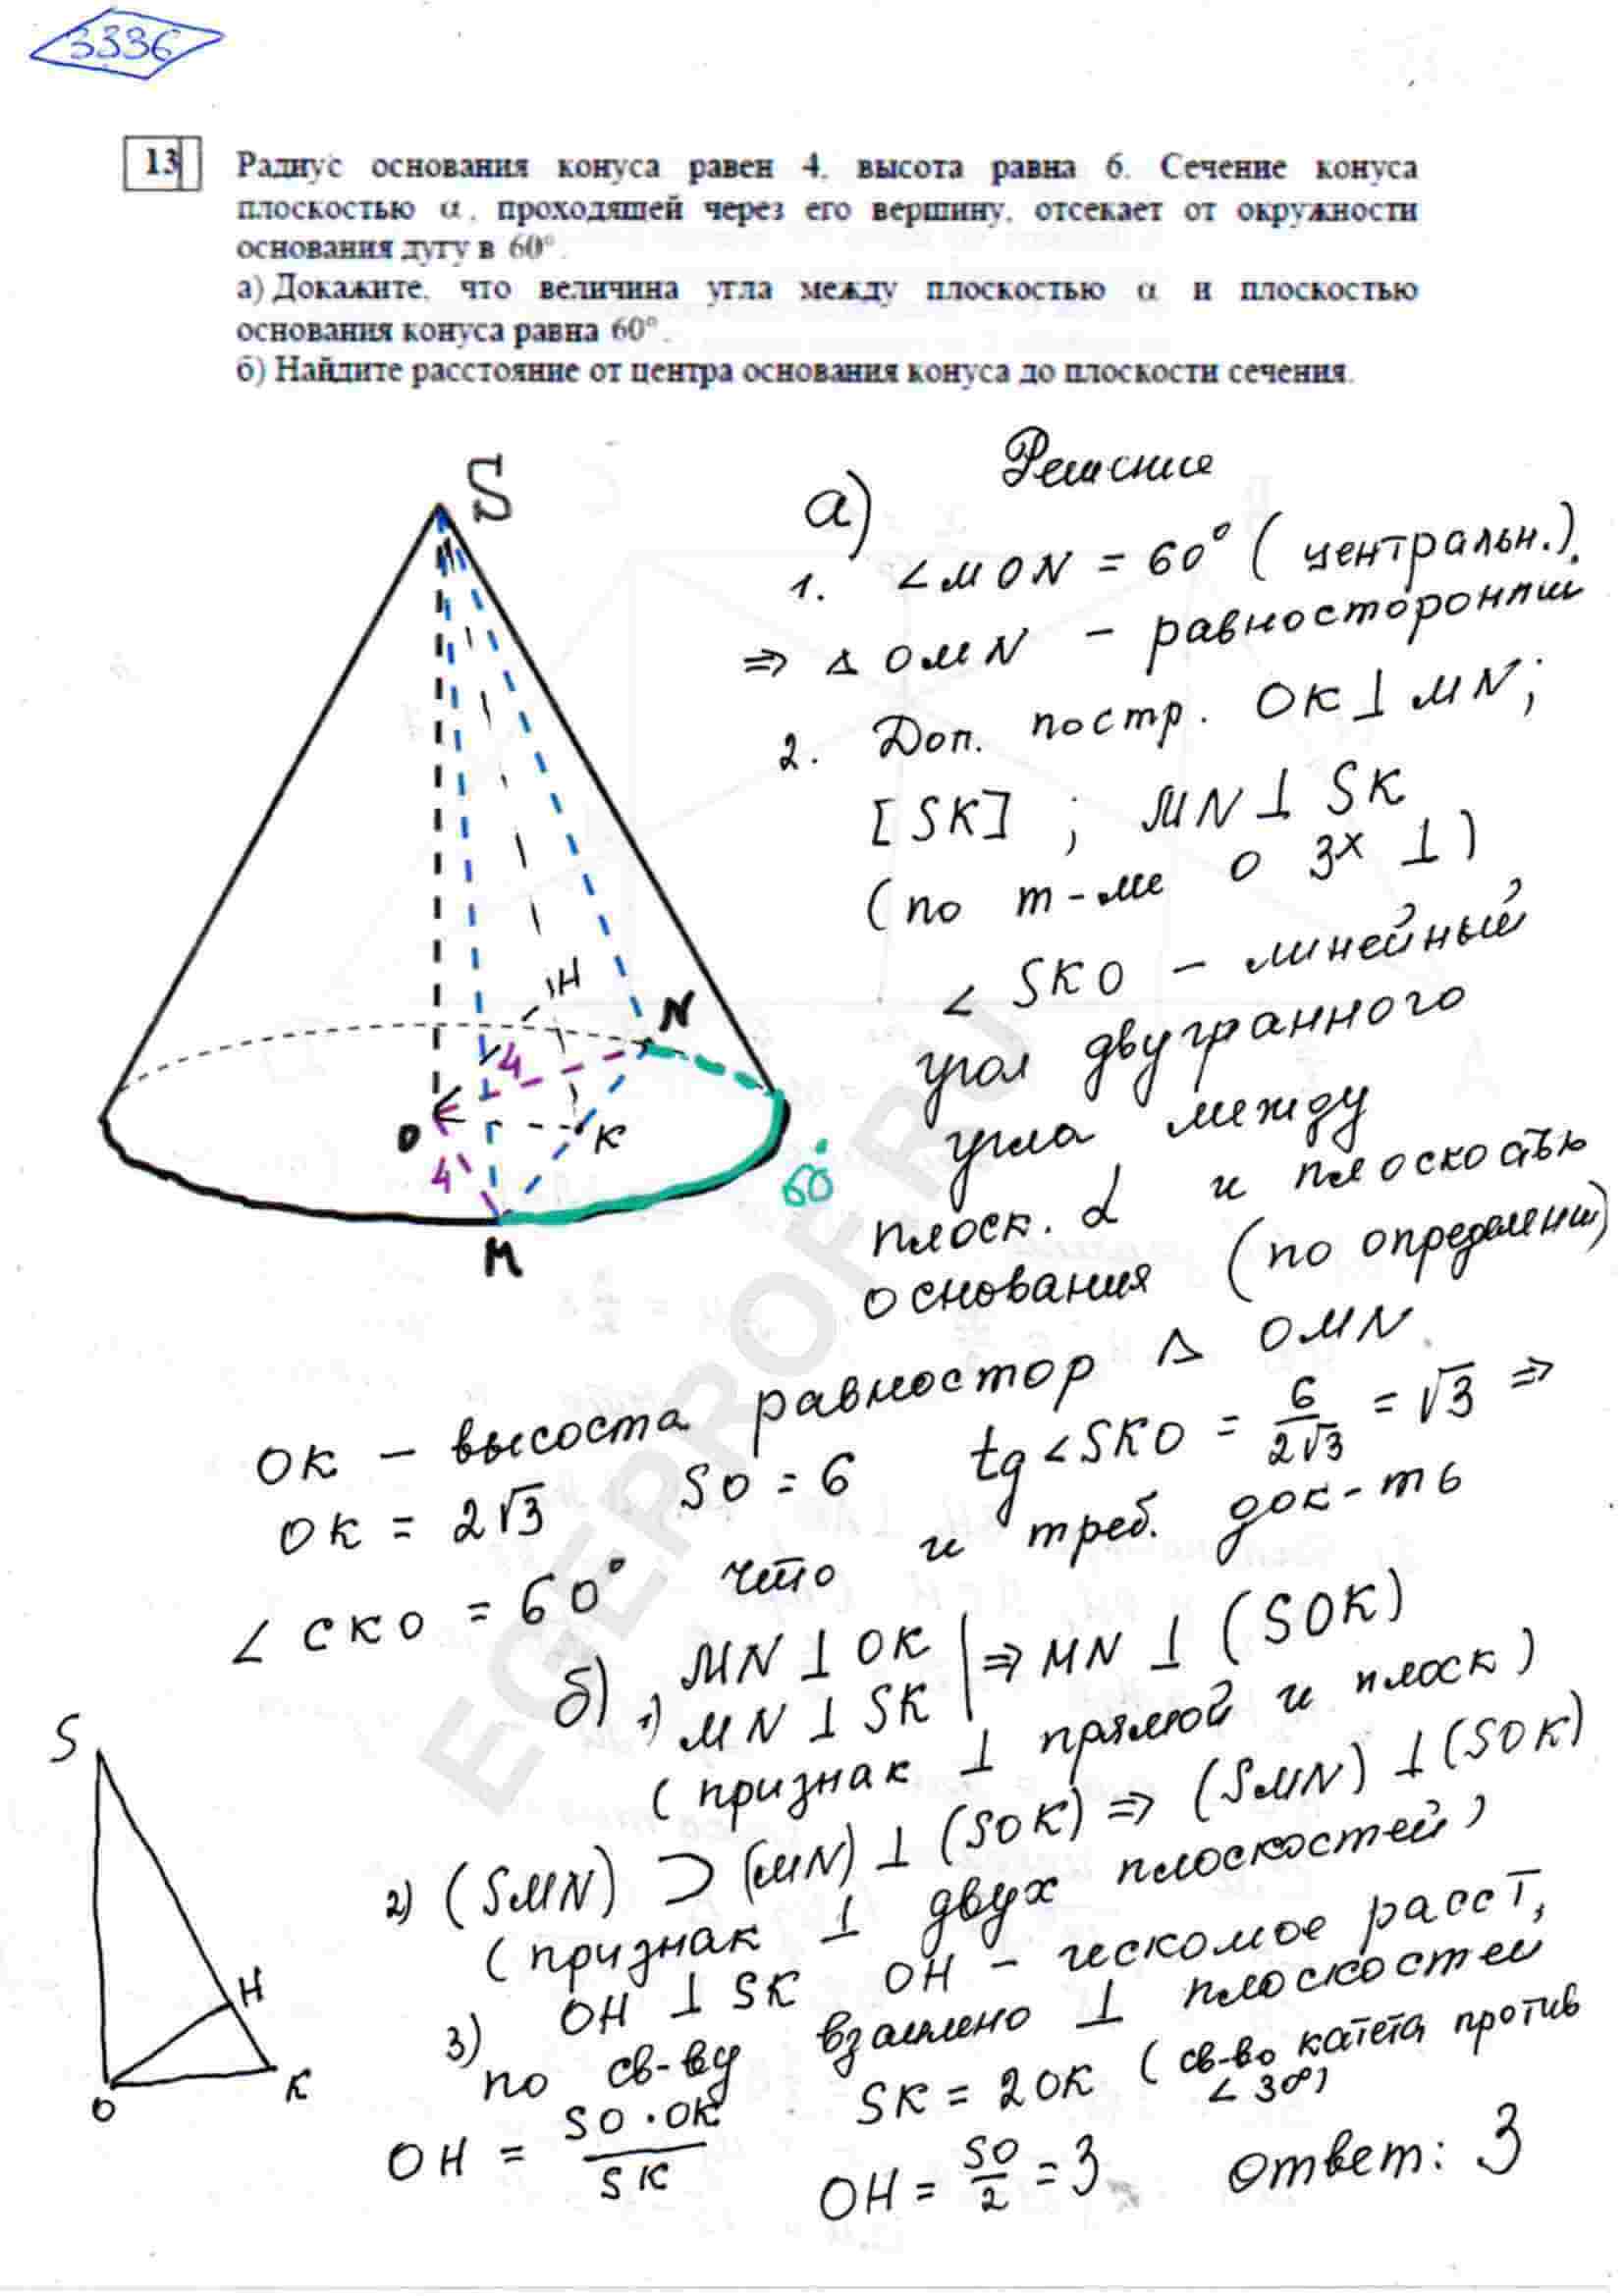 3336
13
Радиус основания конуса равен 4, высота равна 6. Сечение конуса
плоскостью α, проходящей через его вершину, отсекает от окружности
основания дугу в 60°.
а) Докажите, что величина угла между плоскостью α и плоскостью
основания конуса равна 60°.
б) Найдите расстояние от центра основания конуса до плоскости сечения.
Решение
а)
1. ∠MON = 60° ( центральн.).
⇒ △ OMN – равносторонний
2. Доп. постр. OK ⊥ MN;
[SK] ; MN ⊥ SK
(по т-ме о 3х ⊥)
∠ SKO – линейный
угол двугранного
угла между
плоск. α и плоскостью
основания (по определени)
S
H
N
4
O
K
4
60°
M
OK – высоста равностор △ OMN
OK = 2√3 SO = 6 tg ∠SKO = 6/2√3 = √3 ⇒
∠ СКО = 60° что и треб. док-ть
б) 1) MN ⊥ OK | ⇒ MN ⊥ (SOK)
MN ⊥ SK
(признак ⊥ прямой и плоск)
2) (SMN) ⊃ (MN) ⊥ (SOK) ⇒ (SMN) ⊥ (SOK)
(признак ⊥ двух плоскостей)
3) OH ⊥ SK OH – искомое расст,
по св-ву взаимно ⊥ плоскостей
SK = 2OK (св-во катета против
∠ 30°)
OH = SO · OK / SK
OH = SO/2 = 3 Ответ: 3
S
H
O
K
EGEPROF.RU